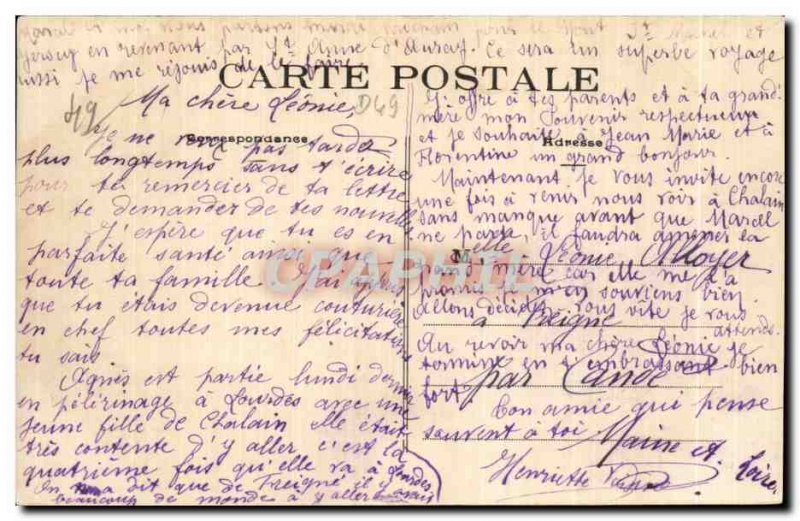 nous partons pour le Mont St Michel et
Jersey en revenant par Ste Anne d'Auray. Ce sera un superbe voyage
aussi je me réjouis de le faire.
CARTE POSTALE
49
D49
Ma chère Léonie,
Correspondance
Je ne veux pas tarder
plus longtemps sans t'écrire
pour te remercier de ta lettre
et te demander de tes nouvelles
J'espère que tu es en
parfaite santé ainsi que
toute ta famille. J'ai appris
que tu étais devenue couturière
en chef toutes mes félicitations
tu sais.
Agnès est partie lundi dernier
en pèlerinage à Lourdes avec une
jeune fille de Chalain elle était
très contente d'y aller c'est la
quatrième fois qu'elle va à Lourdes
On m'a dit que de Freigné il y avait
beaucoup de monde à y aller
J'offre à tes parents et à ta grand'
mère mon souvenir respectueux
et je souhaite à Jean Marie et à
Adresse
Florentine un grand bonjour.
Maintenant je vous invite encore
une fois à venir nous voir à Chalain
sans manque avant que Marcel
ne parte, il faudra amener la
M elle Léonie
grand'mère car elle me l'a
promis je m'en souviens bien
allons décidez vous vite je vous
attends.
à Freigné
Au revoir ma chère Léonie je
termine en t'embrassant bien
fort.
par Candé
Ton amie qui pense
souvent à toi
Maine et Loire
Henriette
CPAPHIL